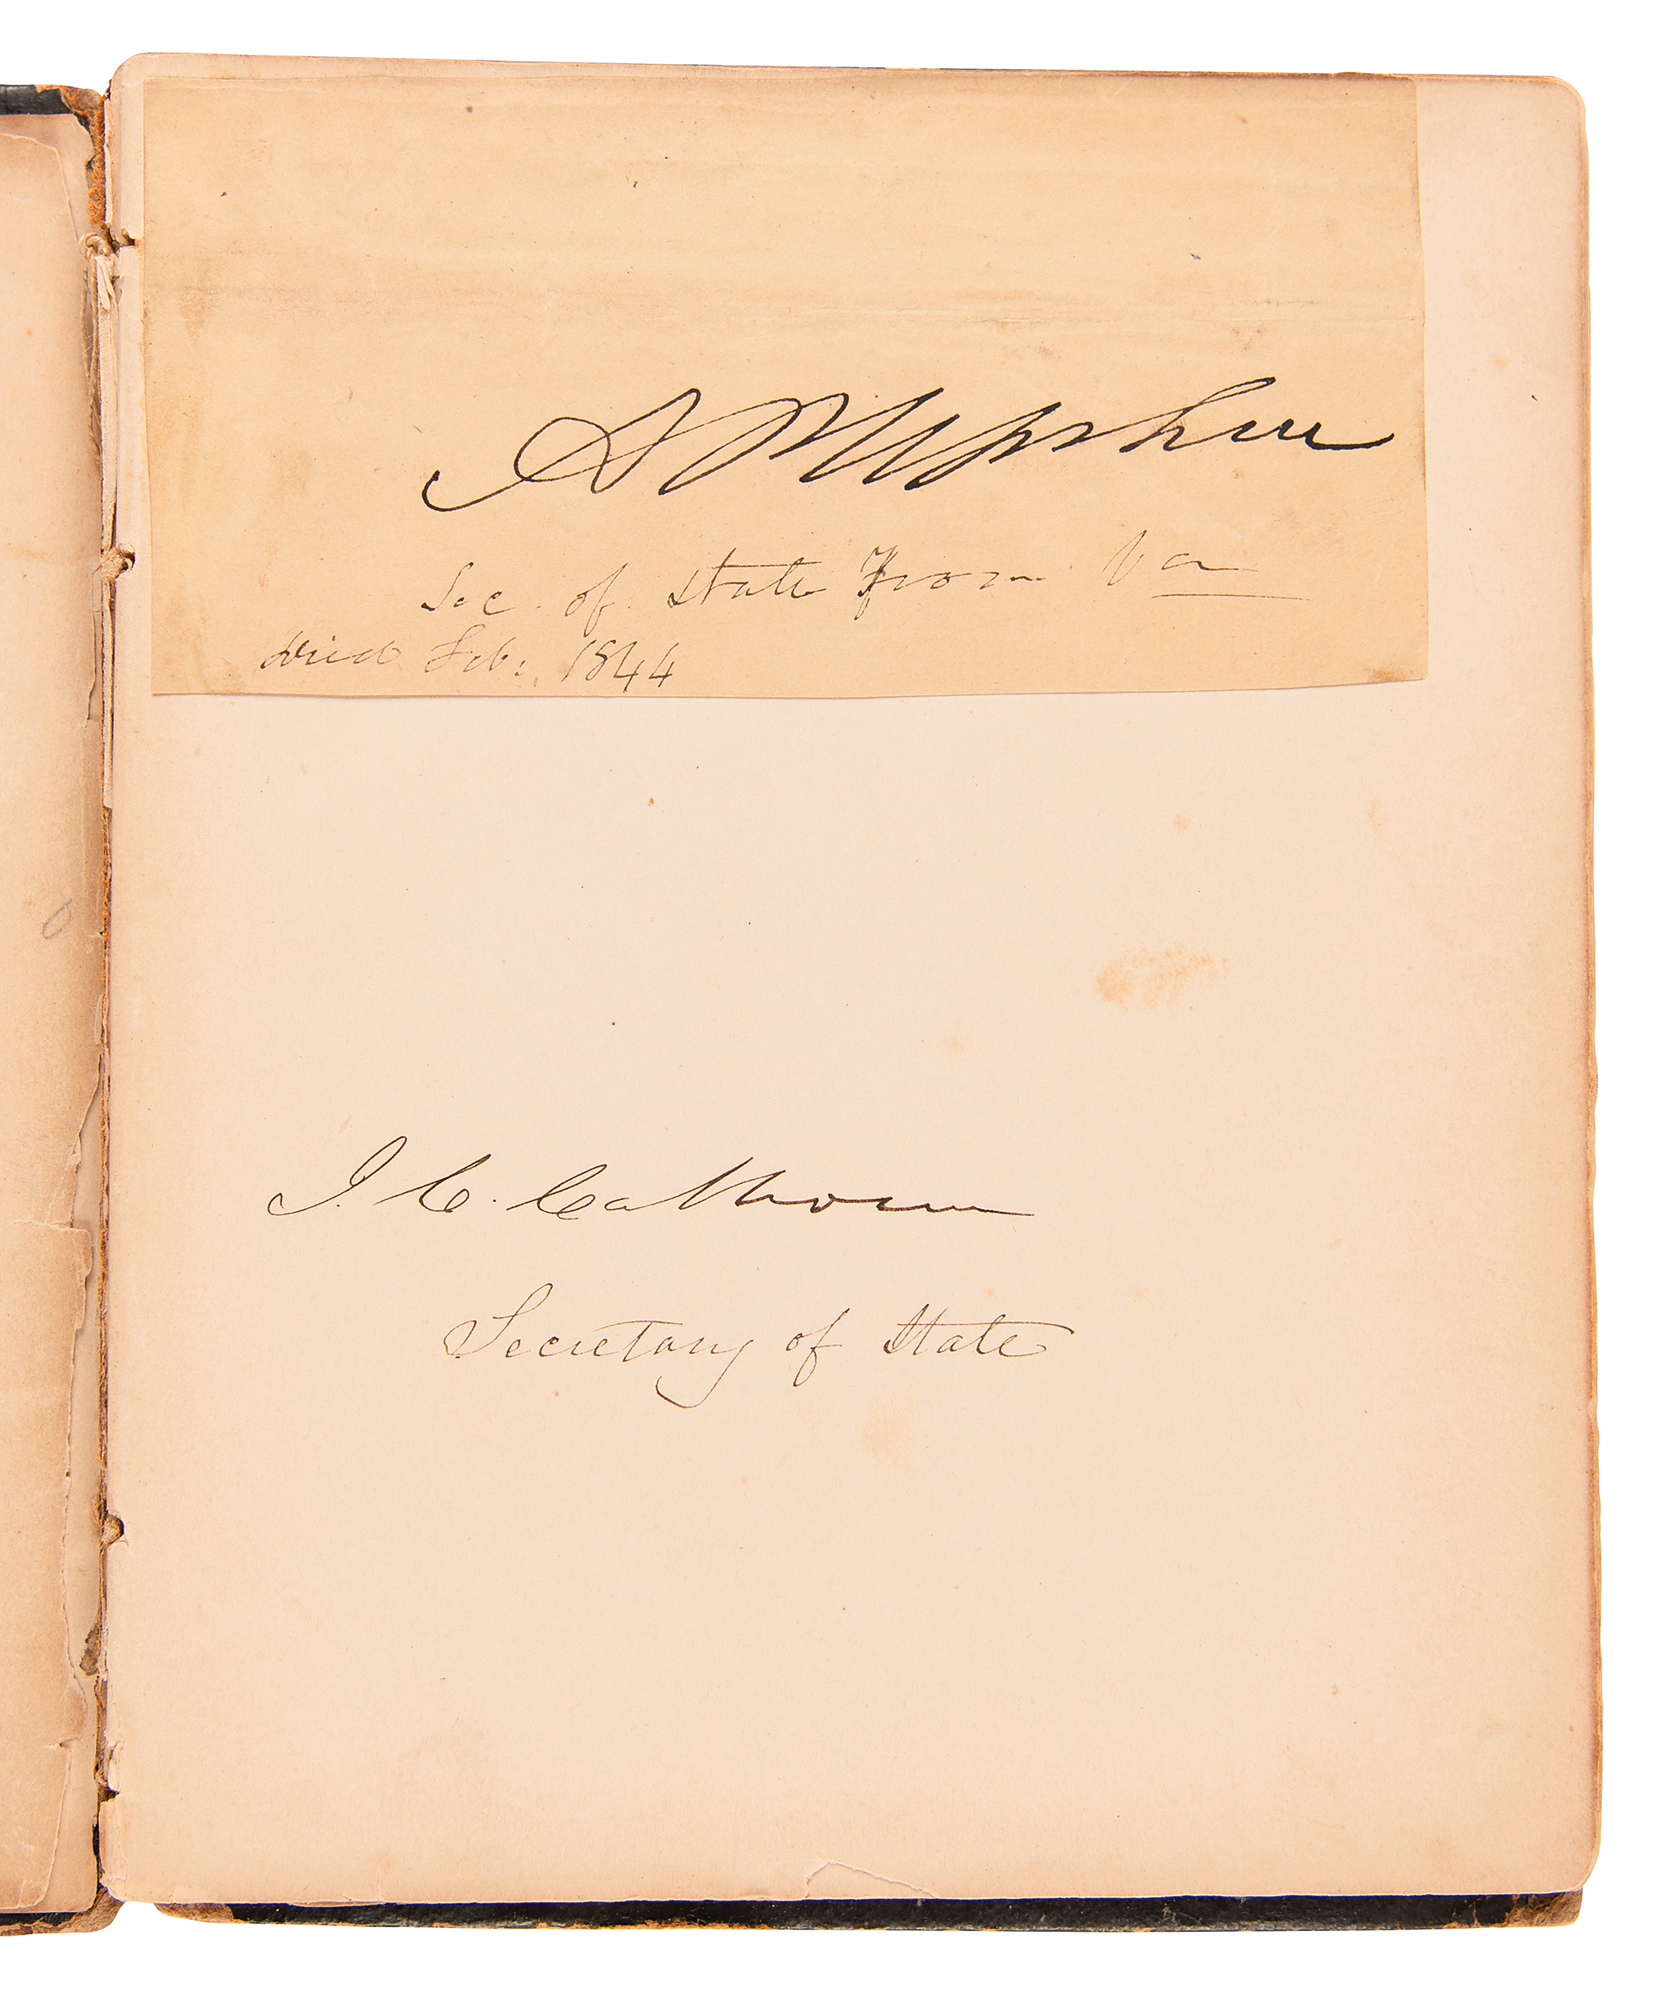 A P Upshur
Sec. of State From Va
died Feb. 1844
J. C. Calhoun
Secretary of State